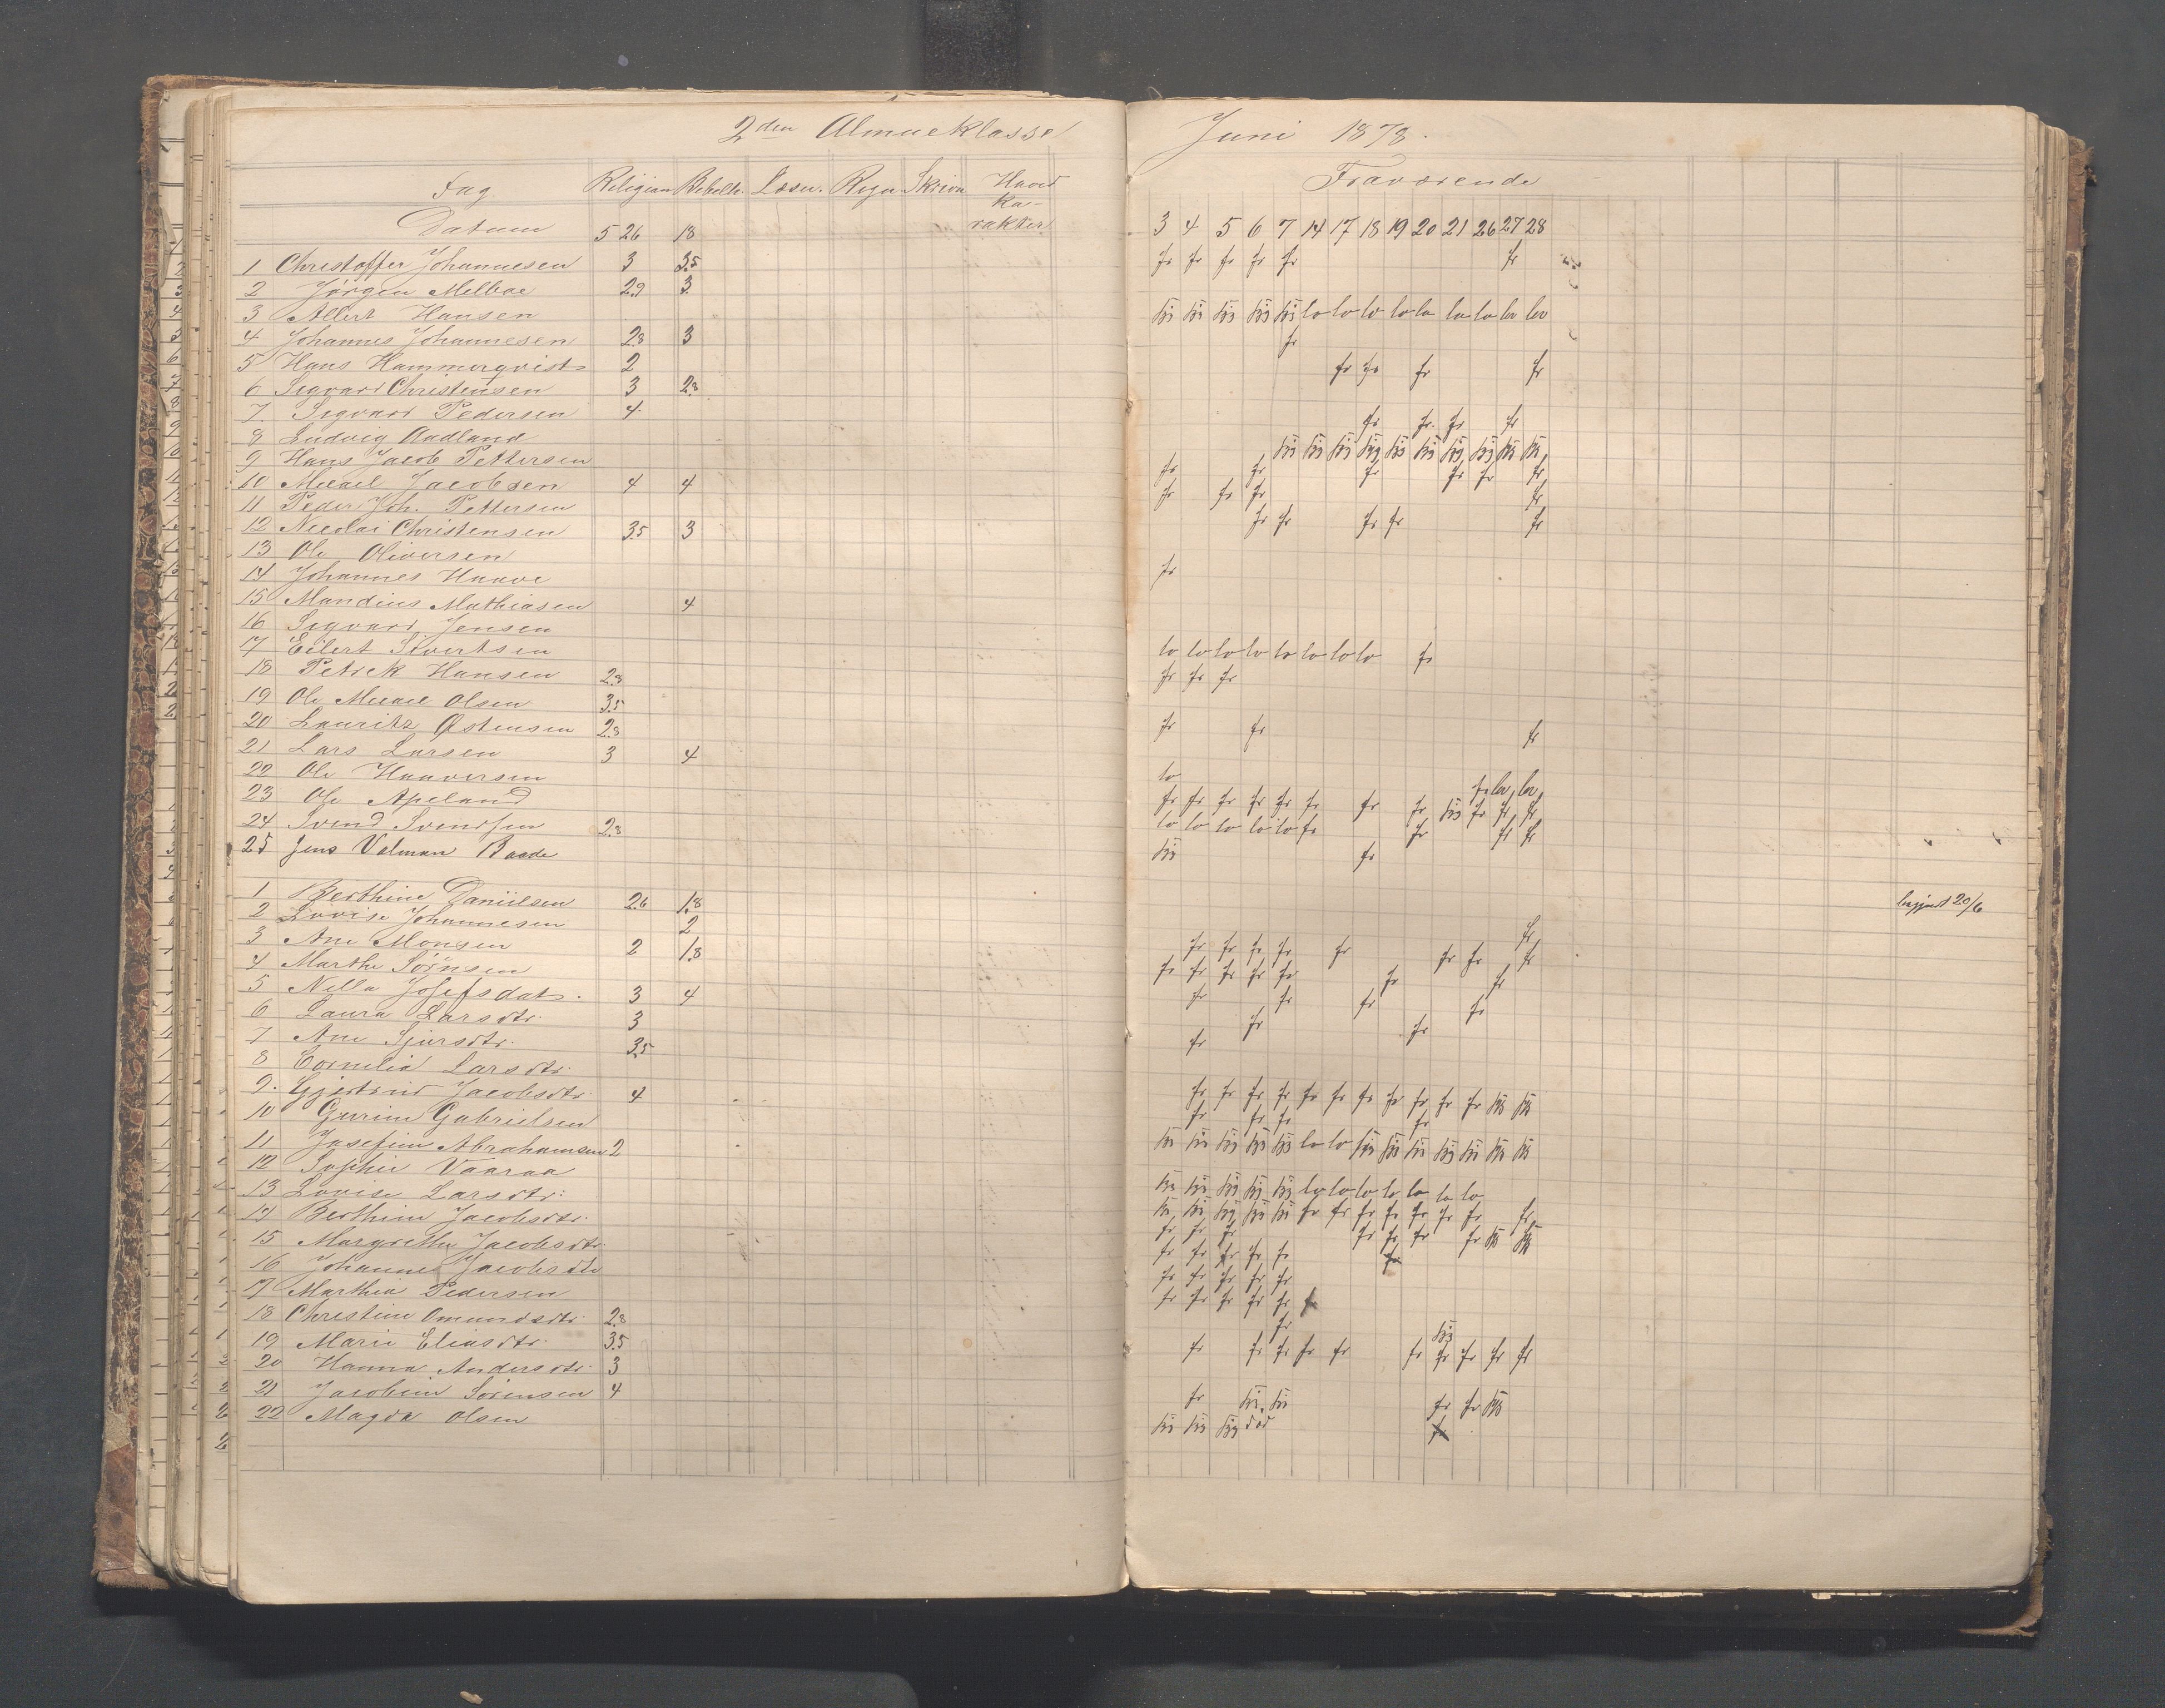 2den Almueklasse
Fag Religion Bibelh. Læsn. Regn. Skrivn Hoved
ka-
rakter
Datum 5 26 18
1 Christoffer Johannesen 3 3.5
2 Jörgen Melboe 2.9 3
3 Allert Hansen
4 Johannes Johannesen 2.8 3
5 Hans Hammerqvist 2
6 Sigvard Christensen 3 2.8
7 Sigvard Pedersen 4
8 Ludvig Aadland
9 Hans Jacob Pettersen
10 Mikael Jacobsen 4 4
11 Peder Joh. Pettersen
12 Nicolai Christensen 3.5 3
13 Ole Oliversen
14 Johannes Haave
15 Mandius Mathiasen 4
16 Sigvard Jensen
17 Eilert Sivertsen
18 Petrek Hansen 2.8
19 Ole Mikael Olsen 3.5
20 Lauritz Østensen 2.8
21 Lars Larsen 3 4
22 Ole Haaversen
23 Ole Apeland
24 Svend Svendsen 2.8
25 Jens Valman Baade
1 Berthine Danielsen 2.6 1.8
2 Lovise Johannesen 2
3 Ane Monsen 2 1.8
4 Marthe Sörnsen
5 Nella Josefsdat. 3 4
6 Laura Larsdtr. 3
7 Ane Sjursdtr. 3.5
8 Cornelia Larsdtr.
9. Gjertrud Jacobsdtr. 4
10 Gurine Gabrielsen
11 Josefine Abrahamsen 2
12 Sophie Vaaraa
13 Lovise Larsdtr.
14 Berthine Jacobsdtr.
15 Margrethe Jacobsdtr.
16 Johanne Jacobsdtr
17 Marthia Pedersen
18 Christine Omundsdtr. 2.8
19 Marie Eliasdtr. 3.5
20 Hanna Andersdtr. 3
21 Jacobine Sörensen 4
22 Magda Olsen
Juni 1878.
Fraværende
3 4 5 6 7 14 17 18 19 20 21 26 27 28
fr fr fr fr fr fr
lo lo lo lo lo lo lo lov lov
fr
fr fr fr fr
fr fr. fr fr
fr fr fr fr fr fr
fr fr fr fr
fr fr fr fr fr
fr
lo lo lo lo lo lo lo lo fr
fr fr fr
fr fr fr
lo fr lov, lov,
fr fr fr fr fr fr fr fr fr fr fr
lo lo lo lo lo fr fr fr fr
fr
begynd 20/6
fr
fr fr fr fr fr fr fr fr
fr fr fr fr fr fr fr
fr fr fr fr
fr fr
fr
fr fr fr fr fr fr fr fr fr fr fr
fr fr fr fr
lo lo
lo lo lo lo lo lo lo
fr fr fr fr fr fr fr fr
fr fr fr fr fr fr fr
fr fr fr fr fr fr
fr fr fr fr fr
fr fr fr fr fr fr
fr
fr fr fr fr fr fr fr fr fr fr
fr fr fr
død fr